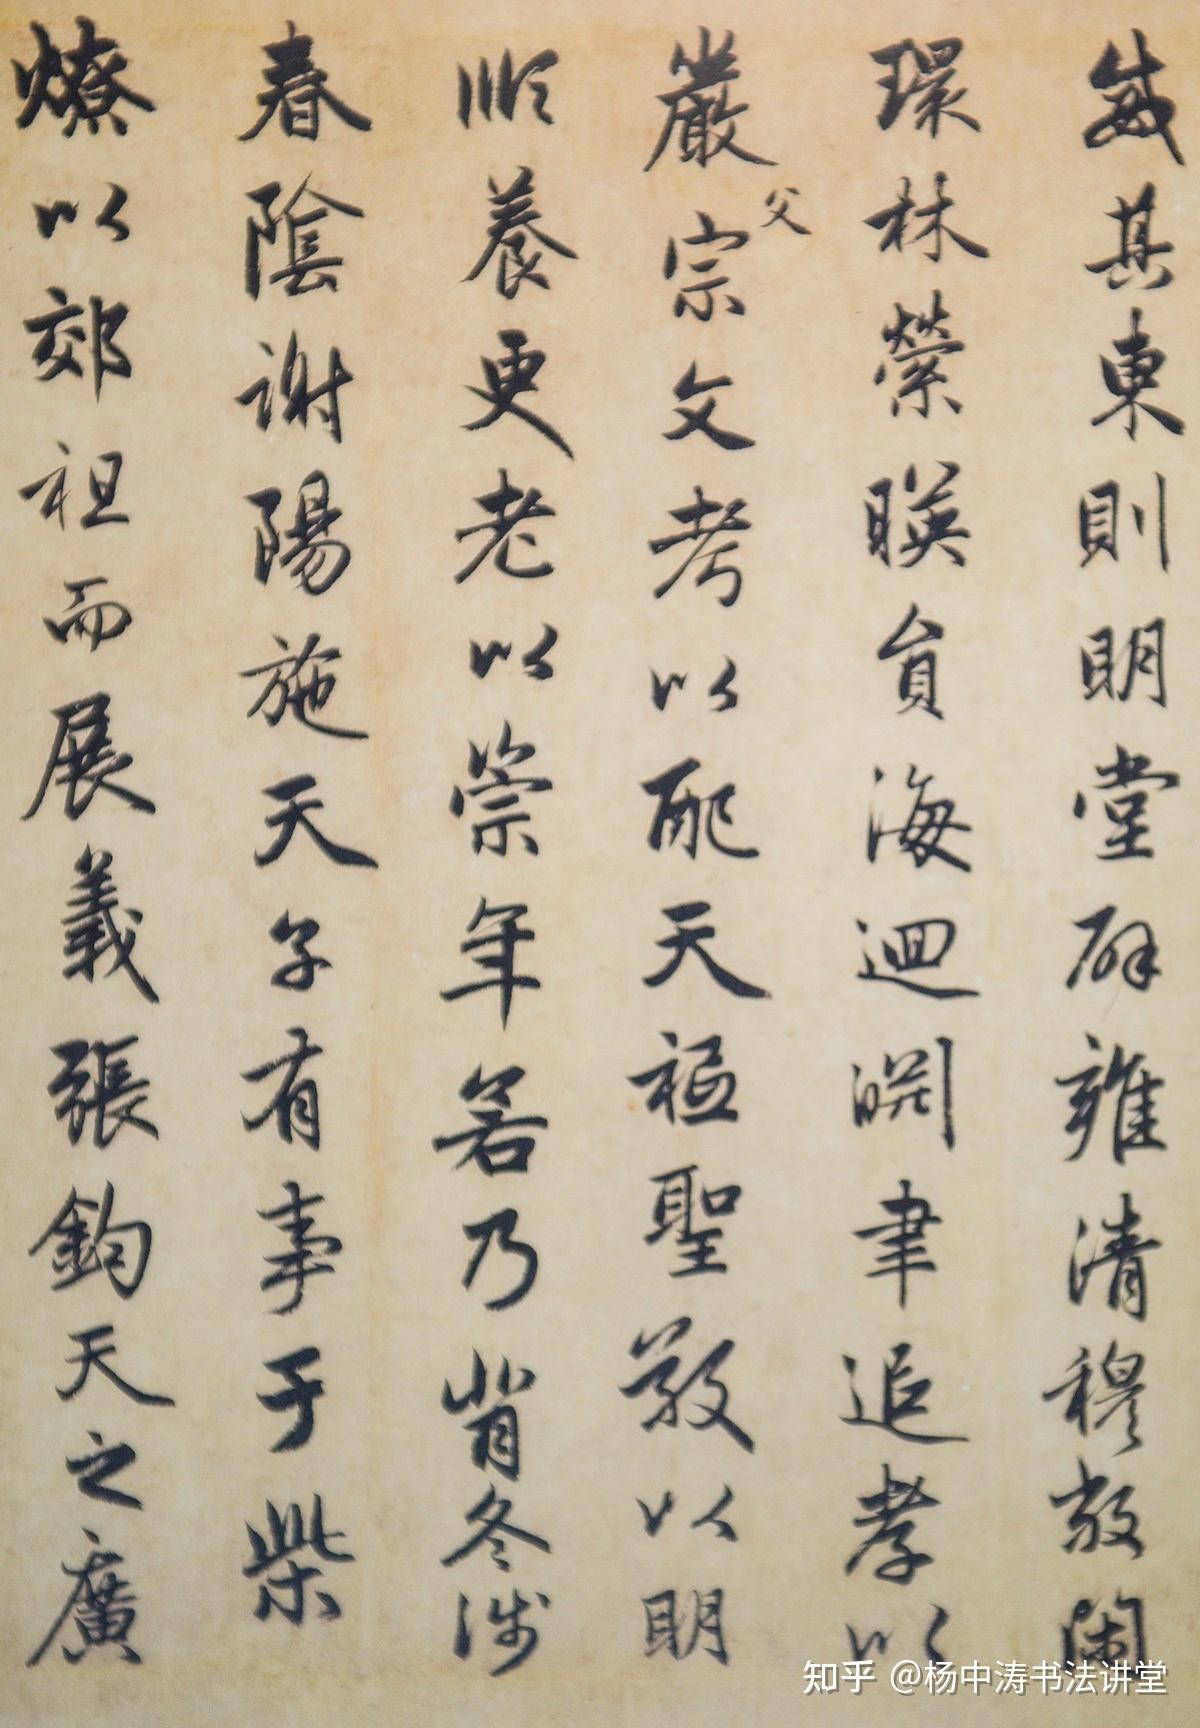 盛其東則明堂辟雍清穆敞閑
環林縈暎員海迴淵聿追孝以
嚴宗文考以配天袛聖敬以明
父
順養更老以崇年若乃背冬涉
春陰謝陽施天子有事于柴
燎以郊祖而展義張鈞天之廣
知乎 @杨中涛书法讲堂